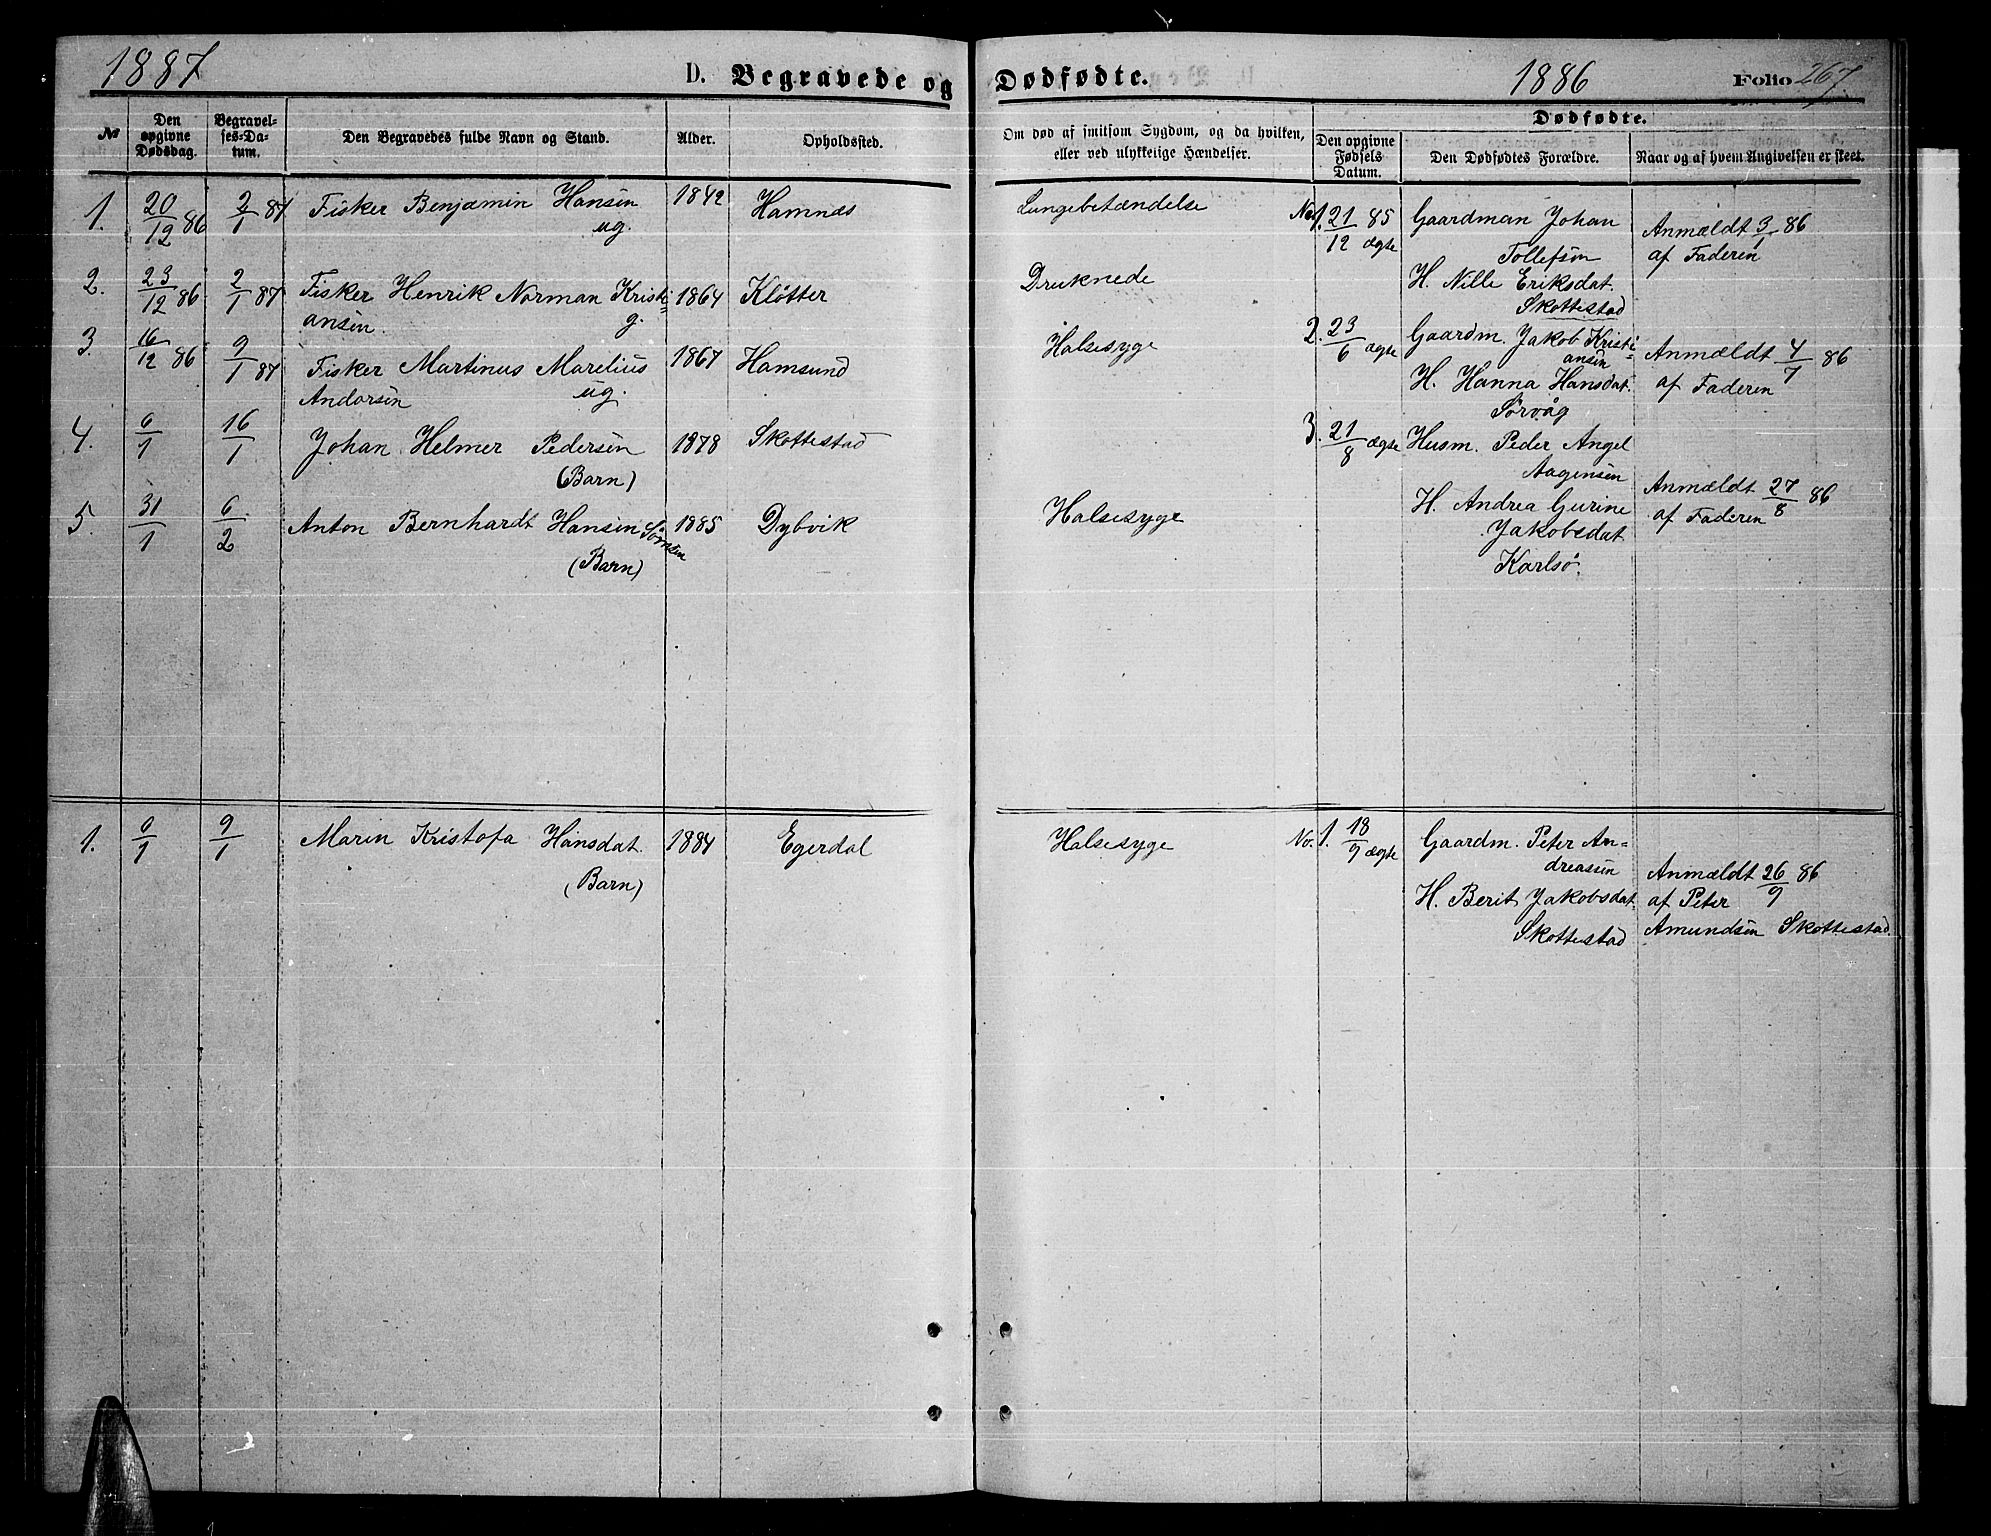 1887
D. Begravede og
Dødfødte.
1886
Folio 267.
№
Den opgivne Dødsdag.
Begravelses-Datum.
Den Begravedes fulde Navn og Stand.
Alder.
Opholdssted.
Om død af smitsom Sygdom, og da hvilken,
eller ved ulykkelige Hændelser.
Dødfødte.
Den opgivne Fødsels Datum.
Den Dødfødtes Forældre.
Naar og af hvem Angivelsen er skeet.
1. 20/12 86 2/1 87 Fisker Benjamin Hansen 1842 Hamnæs Lungebetændelse
ug.
2. 23/12 86 2/1 87 Fisker Henrik Norman Kristi- 1864 Kløtter Druknede
ansen. g.
3. 16/12 86 9/1 87 Fisker Martinus Marelius 1867 Hamsund Halsesyge
Andorsen ug.
4. 6/1 16/1 Johan Helmer Pedersen 1878 Skottestad
(Barn)
5. 31/1 6/2 Anton Bernhardt Hansen 1885 Dybvik Halsesyge
(Barn)
No. 1. 21/12 85 ægte Gaardman Johan
Tollefsen
H. Nille Eriksdat.
Skottestad
Anmældt 3/1 86
af Faderen
2. 23/6 ægte Gaardm. Jakob Kristi-
ansen
H. Hanna Hansdat.
Sørvåg
Anmældt 4/7 86
af Faderen
3. 21/8 ægte Husm. Peder Angel
Aagensen
H. Andrea Gurine
Jakobsdat
Karlsø.
Anmældt 27/8 86
af Faderen
1. 6/1 9/1 Marin Kristofa Hansdat. 1884 Egerdal Halsesyge
(Barn)
No. 1. 18/9 ægte Gaardm. Peter An-
dreasen
H. Berit Jakobsdat.
Skottestad
Anmældt 26/9 86
af Peter
Amundsen Skottestad.